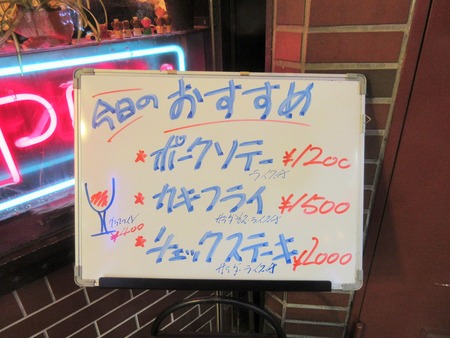 今日の おすすめ
*ポークソテー ¥1200
ライス付
*カキフライ ¥1500
*チェックステーキ ¥2000
サラダ・ライス付
グラスワイン
¥400